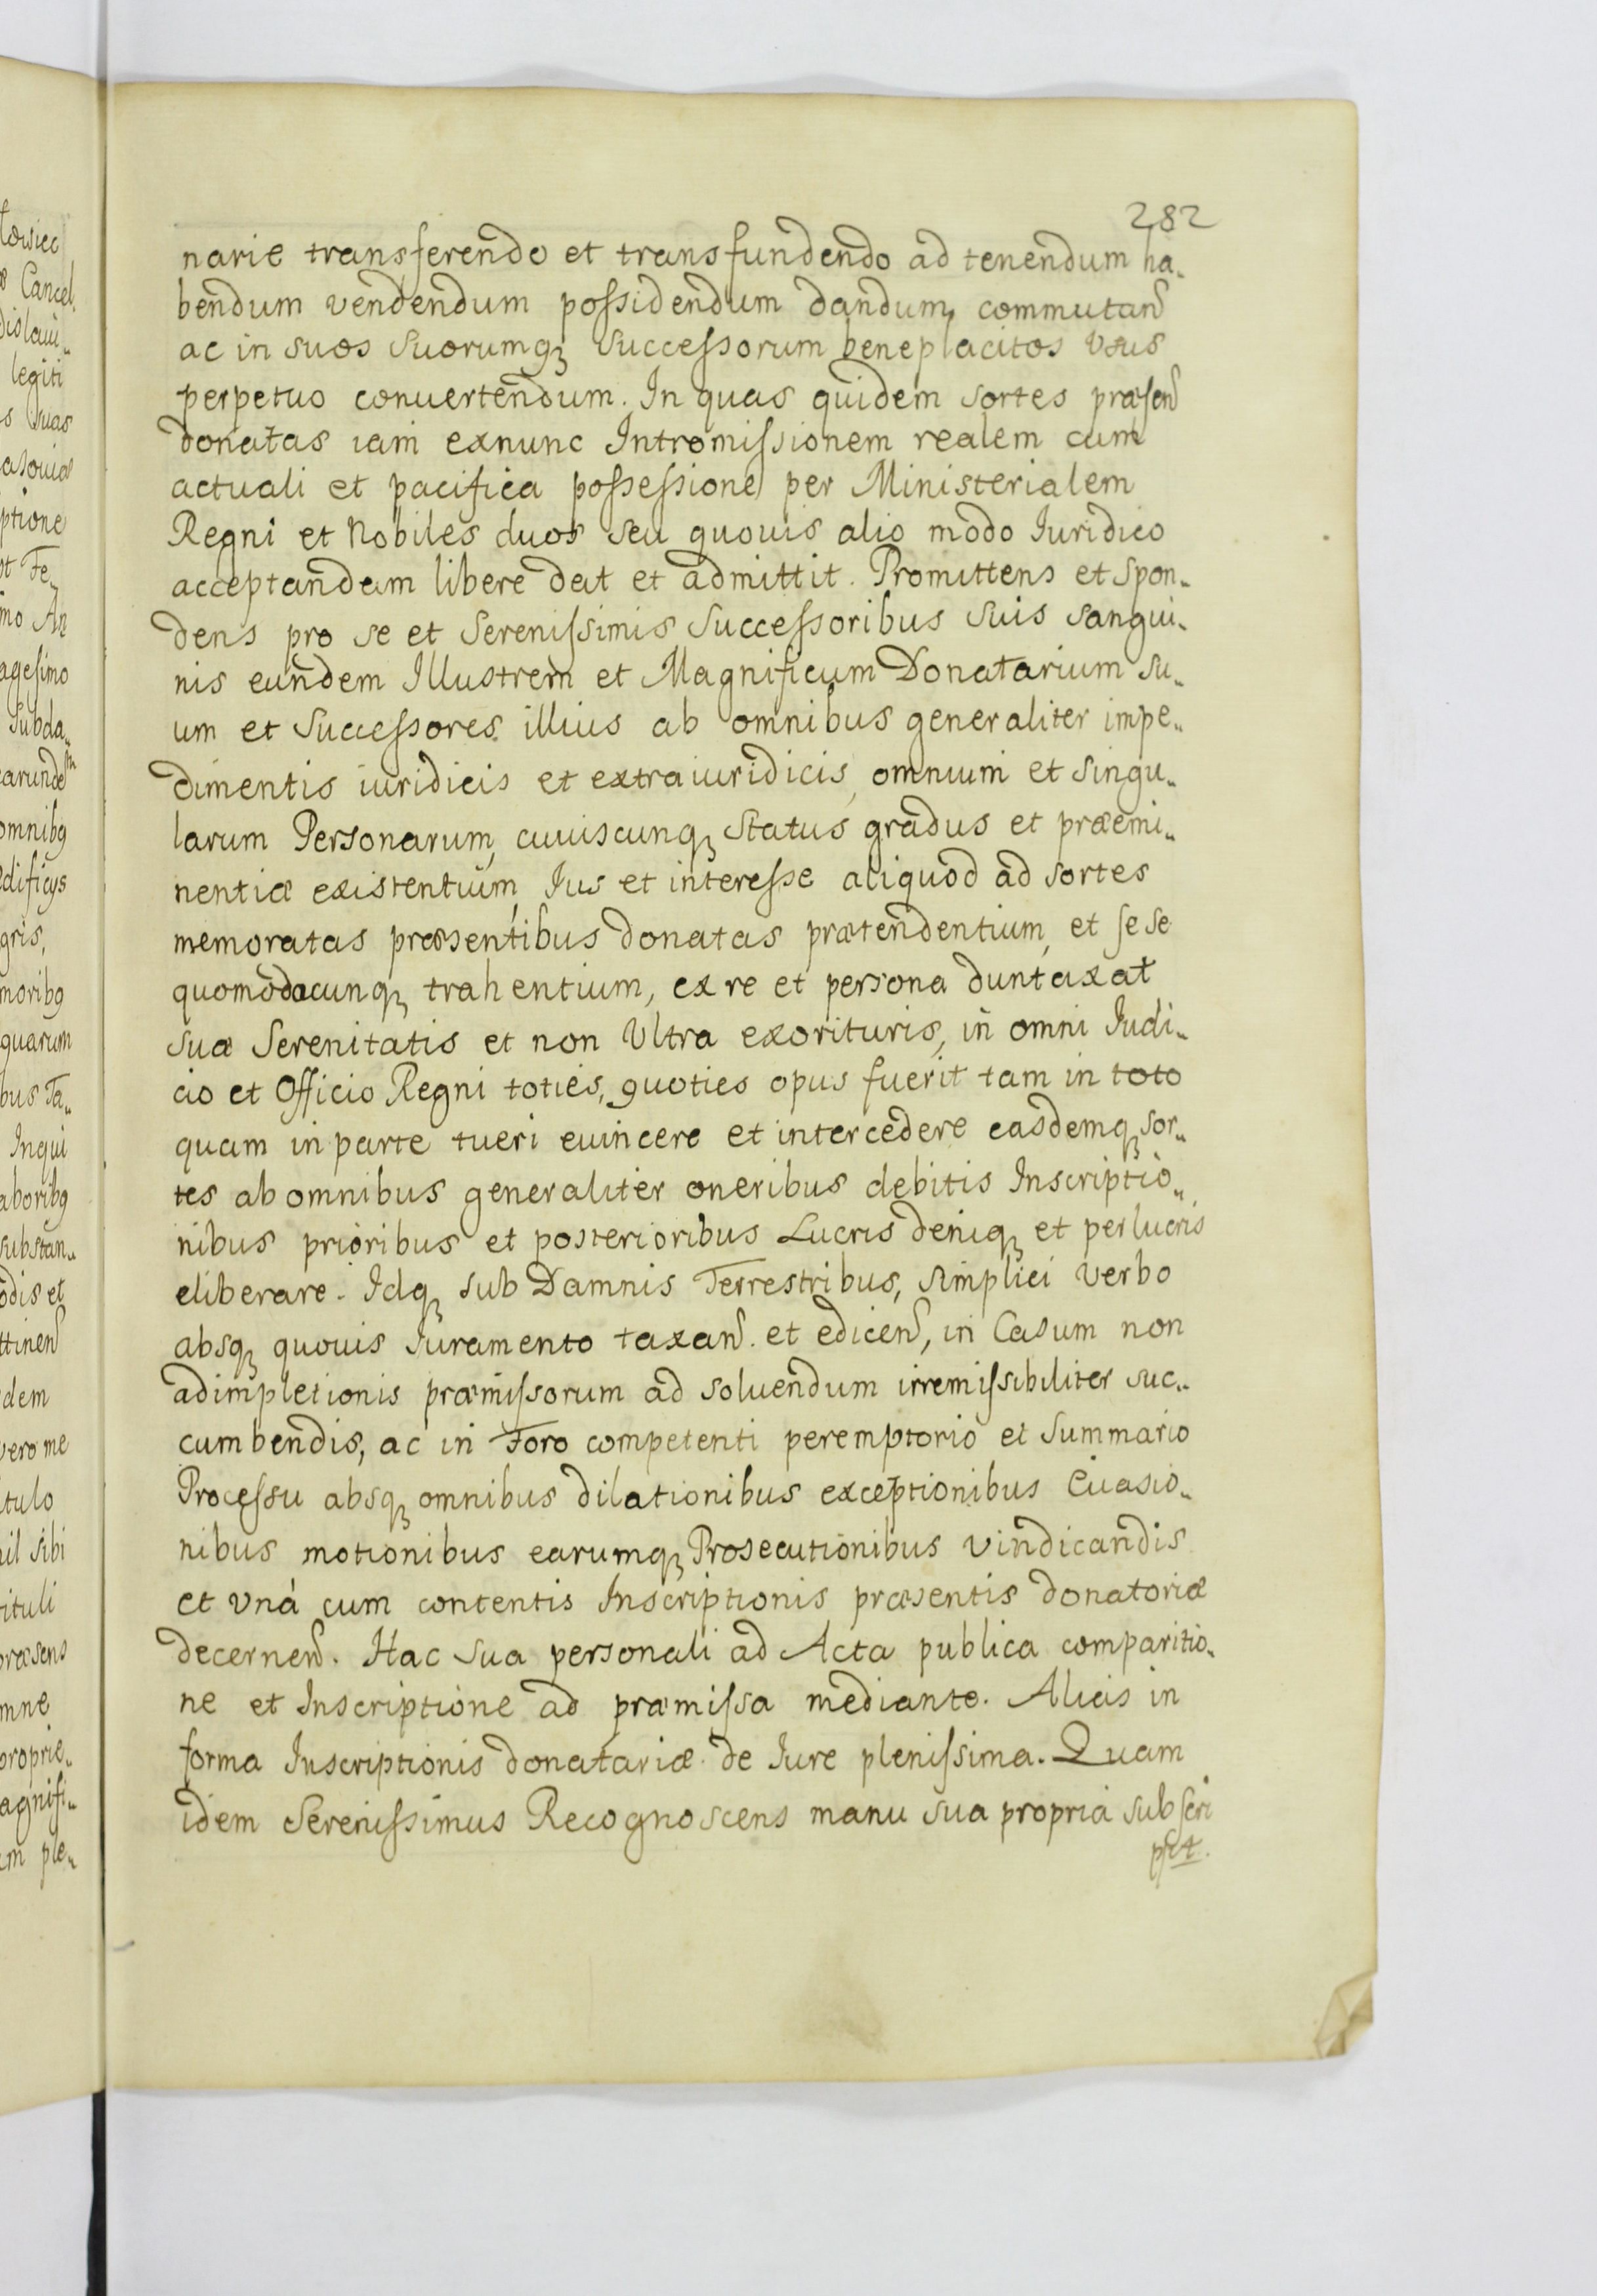 282
narie transferendo et transfundendo ad tenendum ha„
bendum vendendum possidendum dandum, commutanđ
ac in suos suorumq; Successorum beneplacitos Usus
perpetuo conuertendum. In quas quidem sortes præsenđ
donatas iam exnunc Intromissionem realem cum
actuali et pacifica possessione per Ministerialem
Regni et Nobiles duos seu quouis alio modo Iuridico
acceptandam libere dat et admittit. Promittens et spon„
dens pro se et Serenissimis Successoribus suis sangui„
nis eundem Illustrem et Magnificum Donatarium su„
um et Successores illius ab omnibus generaliter impe„
dimentis iuridicis et extraiuridicis, omnium et singu„
larum Personarum, cuiuscunq; Status gradus et præemi„
nentiæ existentium, Ius et interesse aliquod ad sortes
memoratas præsentibus donatas prætendentium, et sese
quomodocunq; trahentium, ex re et persona duntaxat
suæ Serenitatis et non Ultra exorituris, in omni Iudi„
cio et Officio Regni toties, quoties opus fuerit tam in toto
quam in parte tueri euincere et intercedere easdemq; sor„
tes ab omnibus generaliter oneribus debitis Inscriptio„
nibus prioribus et posterioribus Lucris deniq; et perlucris
eliberare. Idq; sub Damnis Terrestribus, simplici verbo
absq; quouis Iuramento taxanđ. et edicenđ, in Casum non
adimpletionis præmissorum ad soluendum irremissibiliter suc„
cumbendis, ac in Foro competenti peremptorio et Summario
Processu absq; omnibus dilationibus exceptionibus Euasio„
nibus motionibus earumq; Prosecutionibus vindicandis
et Vná cum contentis Inscriptionis præsentis donatoriæ
decernenđ. Hac sua personali ad Acta publica comparitio„
ne et Inscriptione ad præmissa mediante. Alicis in
forma Inscriptionis donatariæ de Iure plenissima. Quam
idem Serenissimus Recognoscens manu sua propria subscri
psit.